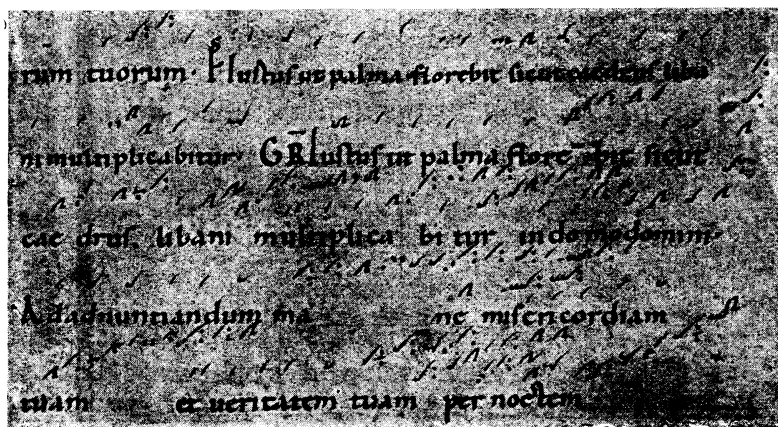 rum tuorum. Iustus ut palma florebit sicut cedrus liba
ni multiplicabitur. GR Iustus ut palma flore bit sicut
cae drus libani multiplica bi tur indomo domini.
Ad adnuntiandum ma ne misericordiam
tuam et ueritatem tuam per noctem